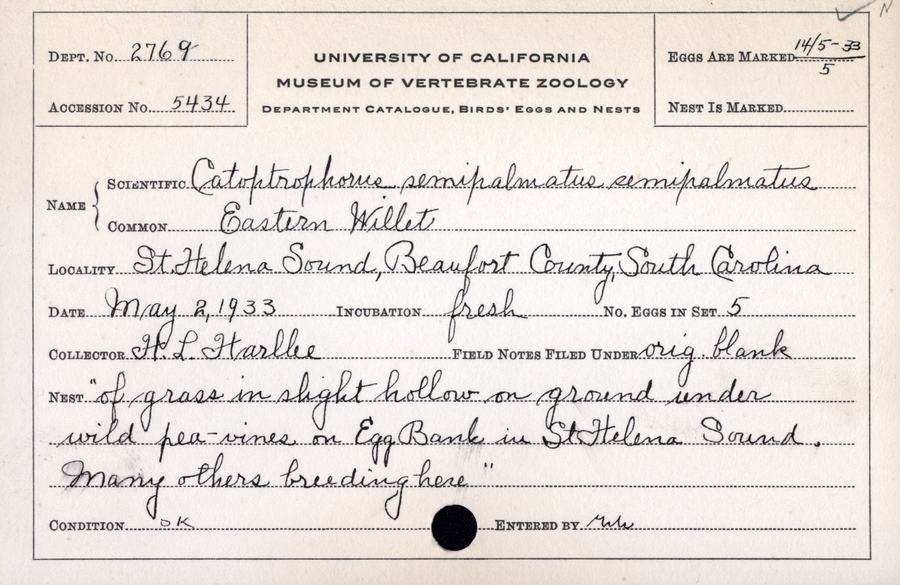 Dept. No. 2769
Accession No. 5434
UNIVERSITY OF CALIFORNIA
MUSEUM OF VERTEBRATE ZOOLOGY
Department Catalogue, Birds' Eggs and Nests
Eggs Are Marked 14/5-33
5
Nest Is Marked
Name
Scientific Catoptrophorus semipalmatus semipalmatus
Common Eastern Willet
Locality St. Helena Sound, Beaufort County, South Carolina
Date May 2, 1933 Incubation fresh No. Eggs in Set 5
Collector H. L. Harllee Field Notes Filed Under orig. blank
Nest "of grass in slight hollow on ground under
wild pea-vines on Egg Bank in St. Helena Sound.
Many others breeding here"
Condition OK Entered by